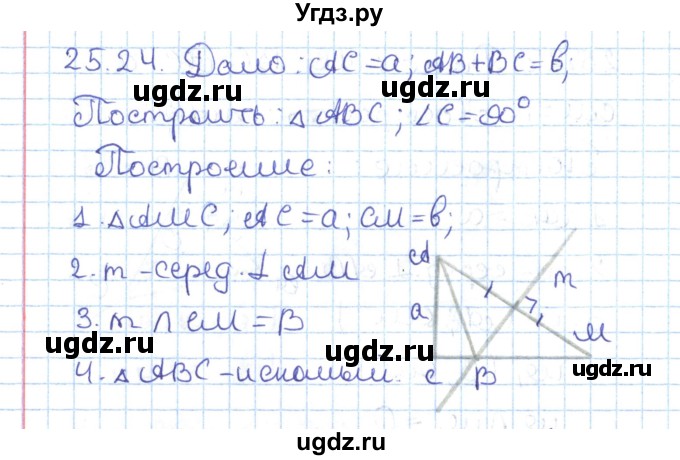 Угдз.ру
25.24. Дано: AC = a; AB + BC = b;
ugdz.ru ugdz.ru
Построить: △ABC; ∠C = 90°
Построение:
ugdz.ru ugdz.ru
1. △AMC; AC = a; CM = b;
2. m - серед. ⊥ AM
3. m ∩ CM = B
4. △ABC - искомый.
A
m
a
M
C B
ugdz.ru ugdz.ru
ugdz.ru